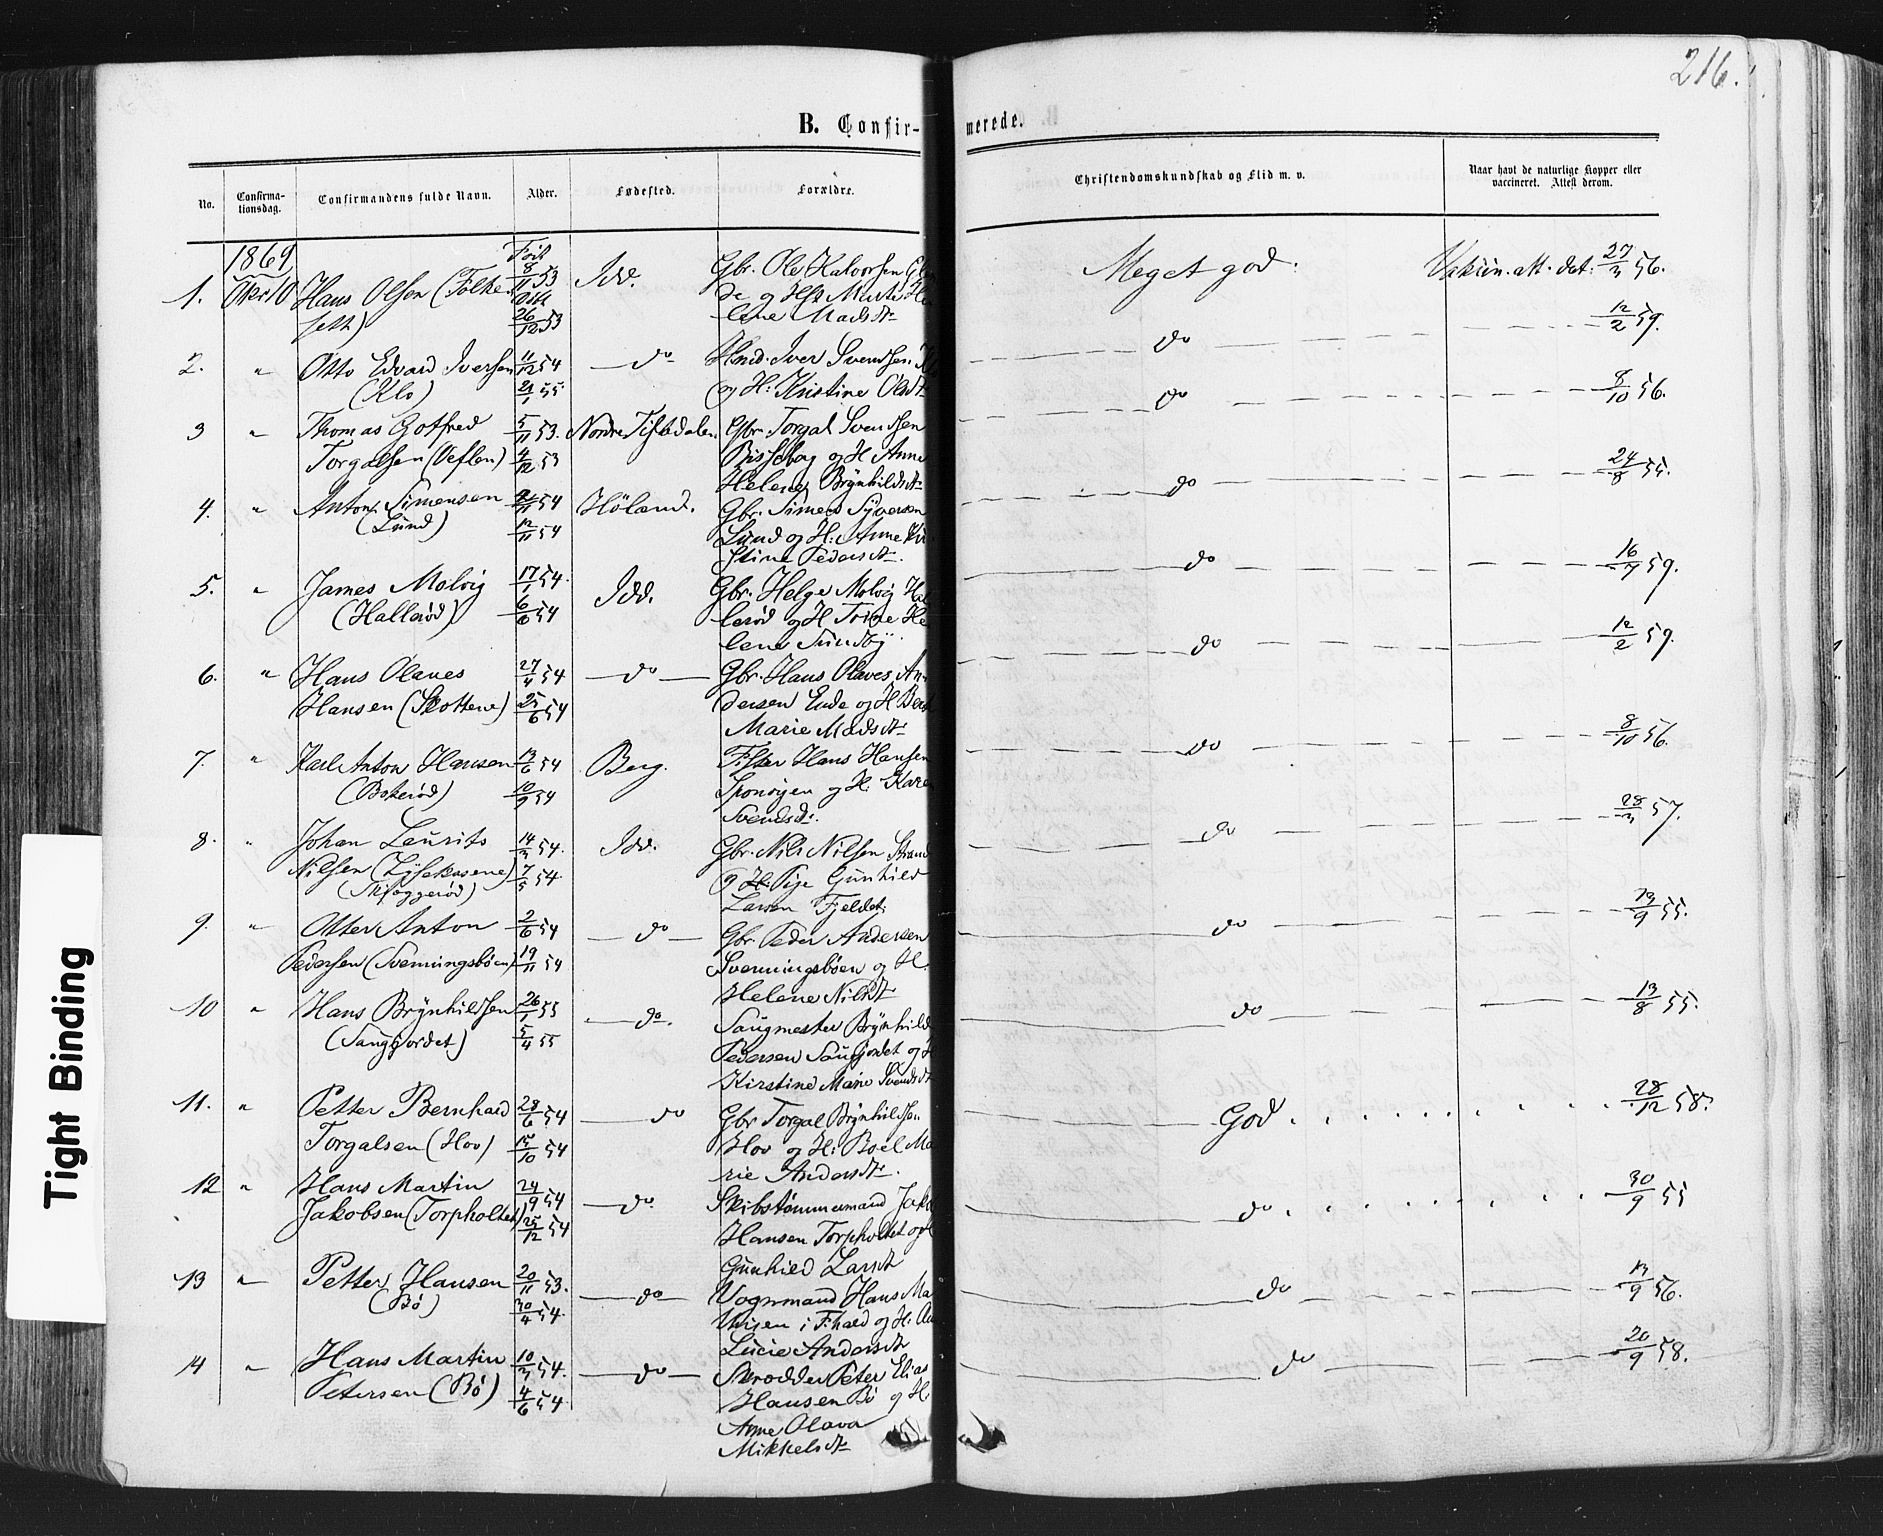 216.
B. Confir-
merede.
No.
Confirma-
tionsdag.
Confirmandens fulde Navn.
Alder.
Fødested.
Forældre.
Christendomskundskab og Flid m. v.
Naar havt de naturlige Kopper eller
vaccineret. Attest derom.
1869
1. Okt 10 Hans Olsen (Folke-
seth)
Født 8/11 53
26/12 53
Idd.
Gbr. Ole Halvorsen
lene Madsdt
Meget god.
Vakcin. att. dat. 27/3 56.
2. " Otto Edvard Iversen
(Klo)
11/12 54
21/1 55
do
Hmd. Iver Svendsen
og H: Kristine Olsdt
do
12/2 59.
3 " Thomas Gotfred
Torgalsen (Veflen)
5/11 53.
4/12 53
Nordre Tistedalen
Gbr. Torgal Svendsen
og H. Anne
Helene Brynhildsdt
do
8/10 56.
4. " Anton Simensen
(Lund)
2/11 54
12/11 54
Høland.
Gbr. Simen Syversen
Lund og H: Anne Kir-
stine Pedersdt.
do
24/8 55.
5. " James Molvig
(Hallerød)
17/1 54.
6/6 54
Idd.
Gbr. Helge Molvig Hal-
lerød og H Trine He-
lene Sundby.
do
16/9 59.
6. " Hans Olaves
Hansen (Skottene)
27/4 54
25/6 54
do
Gbr. Hans Olaves An-
dersen Ende og H. Bert
Marie Madsdt.
do
12/2 59.
7. " Karl Anton Hansen
(Bakerød)
13/6 54
10/9 54
Berg.
Fisker Hans Hansen
Sponvigen og H. Karen
Svendsdt.
do
8/10 56.
8. " Johan Lauritz
Nilsen (Lysekasene)
(Skjæggerød)
14/3 54.
7/5 54.
Idd.
Gbr. Nils Nilsen Strand
og H. Pige Gunhild
Larsen Fjeldet.
do
28/3 57.
9. " Otter Anton
Pedersen (Svenningsbøen)
2/6 54
19/11 54
do
Gbr. Peder Andersen
Svenningsbøen og H.
Helene Nilsdt
do
19/9 55.
10 " Hans Brynhildsen
(Saugjordet)
26/1 55
5/4 55
do.
Saugmester Brynhild
Pedersen Saugjordet og H
Kirstine Marie Svendsdt
do
13/8 55.
11. " Petter Bernhard
Torgalsen (Hov)
28/6 54
15/10 54
do
Gbr Torgal Brynhildsen
Hov og H: Boel Ma-
rie Andersdt.
God
28/12 58.
12 " Hans Martin
Jakobsen (Torpholtet)
24/9 54
25/12 54
do.
Skibstømmermand Jakob
Hansen Torpholtet og H
Gunhild Larsdt
do
30/9 55
13 " Petter Hansen
(Bø)
20/11 53.
30/4 54.
do
Vognmand Hans Ma-
thisen i F.hald og H. An
Lucie Andersdt
do
13/9 56.
14 " Hans Martin
Petersen (Bø)
10/3 54.
4/6 54.
do
Skrædder Peter Elias
Hansen Bø og H:
Anne Olava
Mikkelsdt
do
20/9 58.
Tight Binding